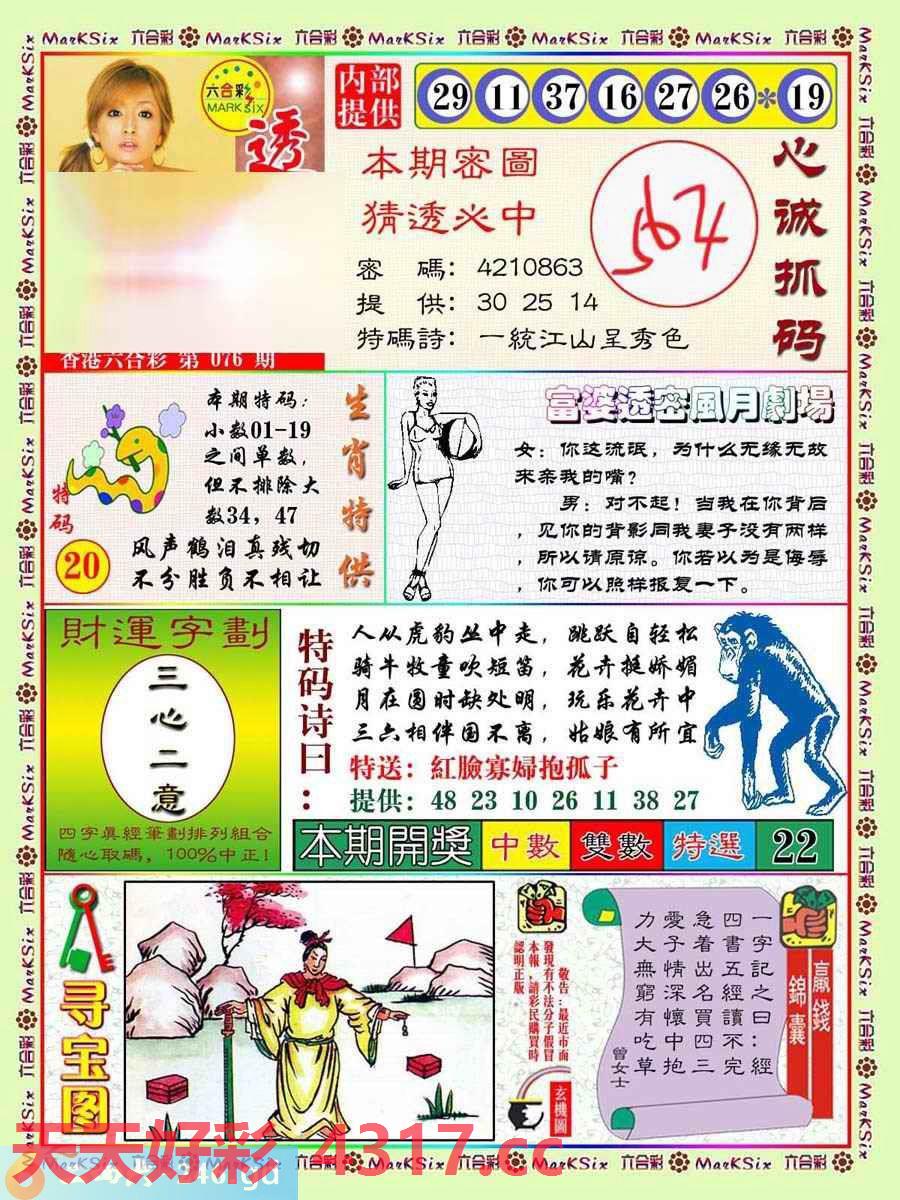 MarKSix 六合彩 MarKSix 六合彩 MarKSix 六合彩 MarKSix 六合彩 MarKSix 六合彩
六合彩
MARK SIX
透
内部
提供
29 11 37 16 27 26 * 19
本期密圖
猜透必中
密 碼: 4210863
提 供: 30 25 14
特碼詩: 一統江山呈秀色
567
心诚抓码
香港六合彩 第 076 期
本期特码:
小数01-19
之间单数,
但不排除大
数34, 47
生肖特供
特码
20
风声鹤泪真残切
不分胜负不相让
富婆透密風月劇場
女: 你这流氓, 为什么无缘无故
來亲我的嘴?
男: 对不起! 当我在你背后
, 见你的背影同我妻子没有两样
, 所以请原谅。你若以为是侮辱
, 你可以照样报复一下。
財運字劃
三心二意
四字真經筆劃排列組合
隨心取碼, 100%中正!
特码诗曰:
人从虎豹丛中走, 跳跃自轻松
骑牛牧童吹短笛, 花卉挺娇媚
月在圆时缺处明, 玩乐花卉中
三六相伴国不离, 姑娘有所宜
特送: 紅臉寡婦抱孤子
提供: 48 23 10 26 11 38 27
本期開獎 中數 雙數 特選 22
寻宝图
敬告:最近市面
發現有不法分子假冒
本報,請彩民購買時
認明正版。
玄機圖
贏錢
錦囊
一字記之曰:經
四書五經讀不完
急着出名買四三
愛子情深懷中抱
力大無窮有吃草
曾女士
天天好彩 4317.cc
MarKSix 六合彩 MarKSix 六合彩 MarKSix 六合彩 MarKSix 六合彩